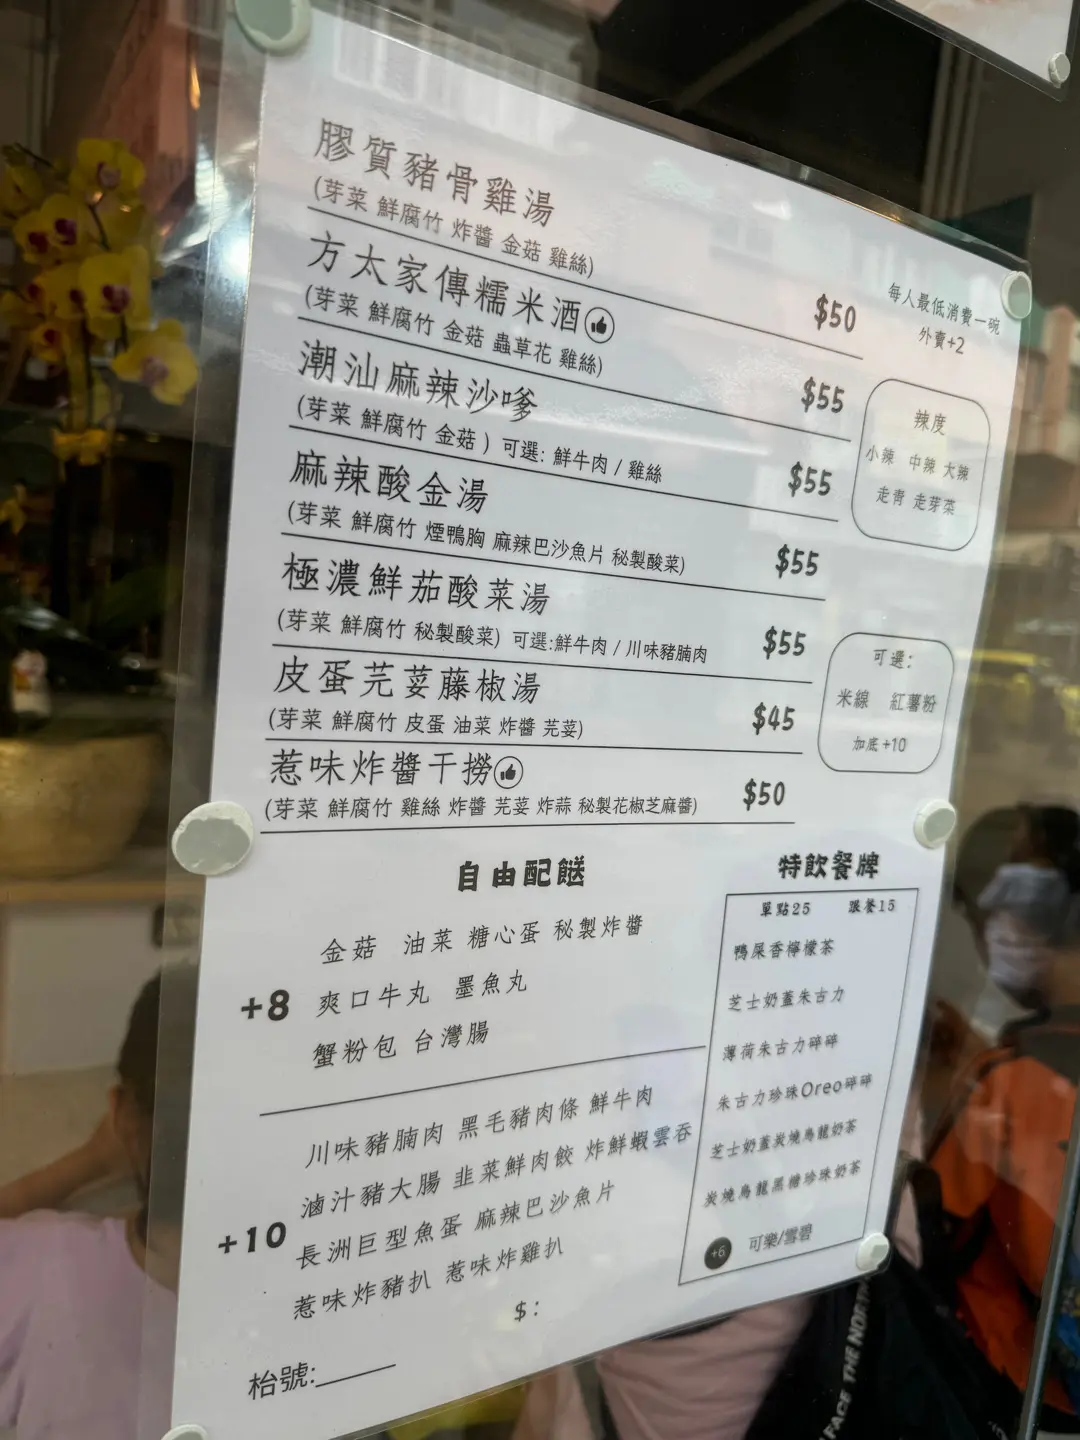 膠質豬骨雞湯
(芽菜 鮮腐竹 炸醬 金菇 雞絲)
$50
方太家傳糯米酒
(芽菜 鮮腐竹 金菇 蟲草花 雞絲)
$55
潮汕麻辣沙嗲
(芽菜 鮮腐竹 金菇 ) 可選: 鮮牛肉 / 雞絲
$55
麻辣酸金湯
(芽菜 鮮腐竹 煙鴨胸 麻辣巴沙魚片 秘製酸菜)
$55
極濃鮮茄酸菜湯
(芽菜 鮮腐竹 秘製酸菜) 可選:鮮牛肉 / 川味豬腩肉
$55
皮蛋芫荽藤椒湯
(芽菜 鮮腐竹 皮蛋 油菜 炸醬 芫荽)
$45
惹味炸醬干撈
(芽菜 鮮腐竹 雞絲 炸醬 芫荽 炸蒜 秘製花椒芝麻醬)
$50
每人最低消費一碗
外賣+2
辣度
小辣 中辣 大辣
走青 走芽菜
可選:
米線 紅薯粉
加底 +10
自由配餸
+8
金菇 油菜 糖心蛋 秘製炸醬
爽口牛丸 墨魚丸
蟹粉包 台灣腸
+10
川味豬腩肉 黑毛豬肉條 鮮牛肉
滷汁豬大腸 韭菜鮮肉餃 炸鮮蝦雲吞
長洲巨型魚蛋 麻辣巴沙魚片
惹味炸豬扒 惹味炸雞扒
$ :
枱號:
特飲餐牌
單點25 跟餐15
鴨屎香檸檬茶
芝士奶蓋朱古力
薄荷朱古力碎碎
朱古力珍珠Oreo碎碎
芝士奶蓋炭燒烏龍奶茶
炭燒烏龍黑糖珍珠奶茶
+6 可樂/雪碧
FACE THE NORTH